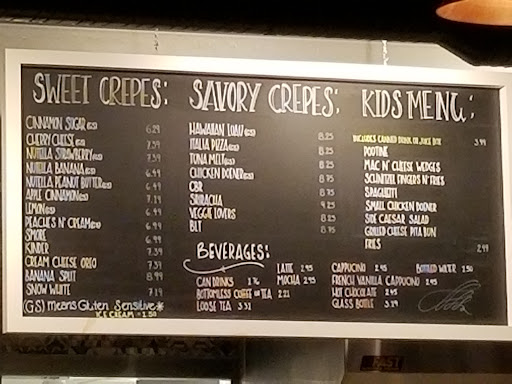 SWEET CREPES:
CINNAMON SUGAR (GS) 6.29
CHERRY CHEESE (GS) 7.39
NUTELLA STRAWBERRY (GS) 7.39
NUTELLA BANANA (GS) 6.99
NUTELLA PEANUT BUTTER (GS) 6.99
APPLE CINNAMON (GS) 7.19
LEMON (GS) 6.99
PEACHES N' CREAM (GS) 7.99
SMORE 6.99
KINDER 7.39
CREAM CHEESE OREO 7.39
BANANA SPLIT 8.99
SNOW WHITE 7.19
(GS) Means Gluten Sensitive*
ICE CREAM 1.50
SAVORY CREPES:
HAWAIIAN LUAU (GS) 8.25
ITALIA PIZZA (GS) 8.25
TUNA MELT (GS) 8.25
CHICKEN DOENER (GS) 8.75
CBR 8.75
SRIRACHA 9.25
VEGGIE LOVERS 8.25
BLT 8.75
KIDS MENU:
INCLUDES CANNED DRINK OR JUICE BOX 3.99
POUTINE
MAC N' CHEESE WEDGES
SCHNITZEL FINGERS N' FRIES
SPAGHETTI
SMALL CHICKEN DOENER
SIDE CAESAR SALAD
GRILLED CHEESE PITA BUN
FRIES 2.99
BEVERAGES:
CAN DRINKS 1.76
BOTTOMLESS COFFEE OR TEA 2.21
LOOSE TEA 3.31
LATTE 2.95
MOCHA 2.95
CAPPUCINO 2.95
FRENCH VANILLA CAPPUCINO 2.95
HOT CHOCOLATE 2.95
GLASS BOTTLE 3.19
BOTTLED WATER 1.50